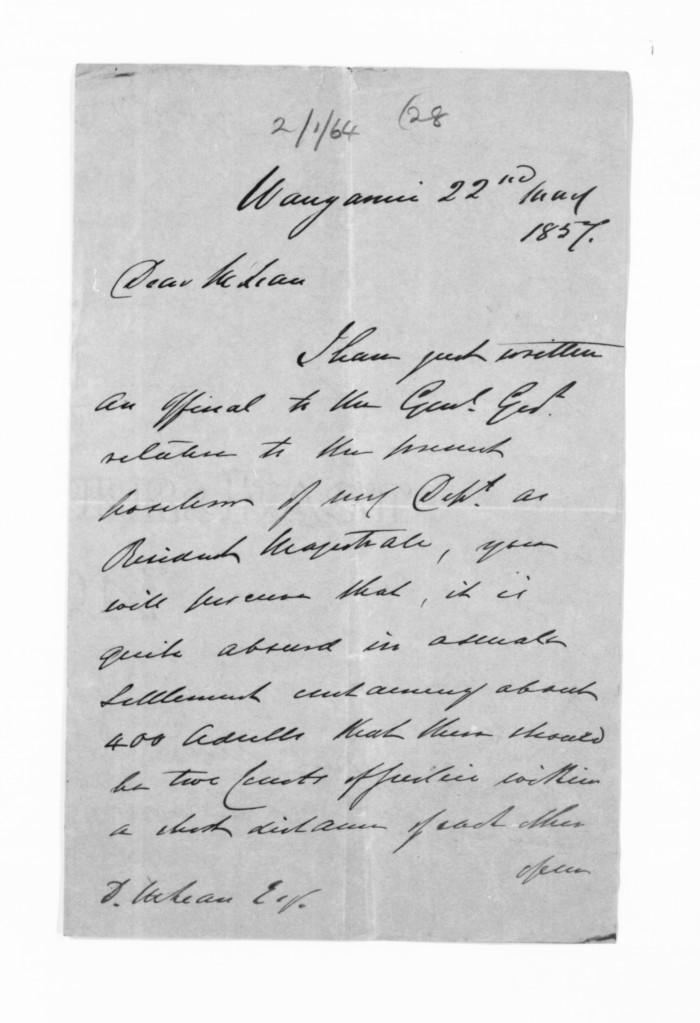 2/1/64 (28
Wanganui 22nd May
1857.
Dear McLean
I have just written
an official to the Genl. Govt.
relative to the present
position of my Dept. as
Resident Magistrate, you
will perceive that, it is
quite absurd in a small
Settlement containing about
400 Adults that there should
be two Courts of Justice within
a short distance of each other
open
D. McLean Esq.